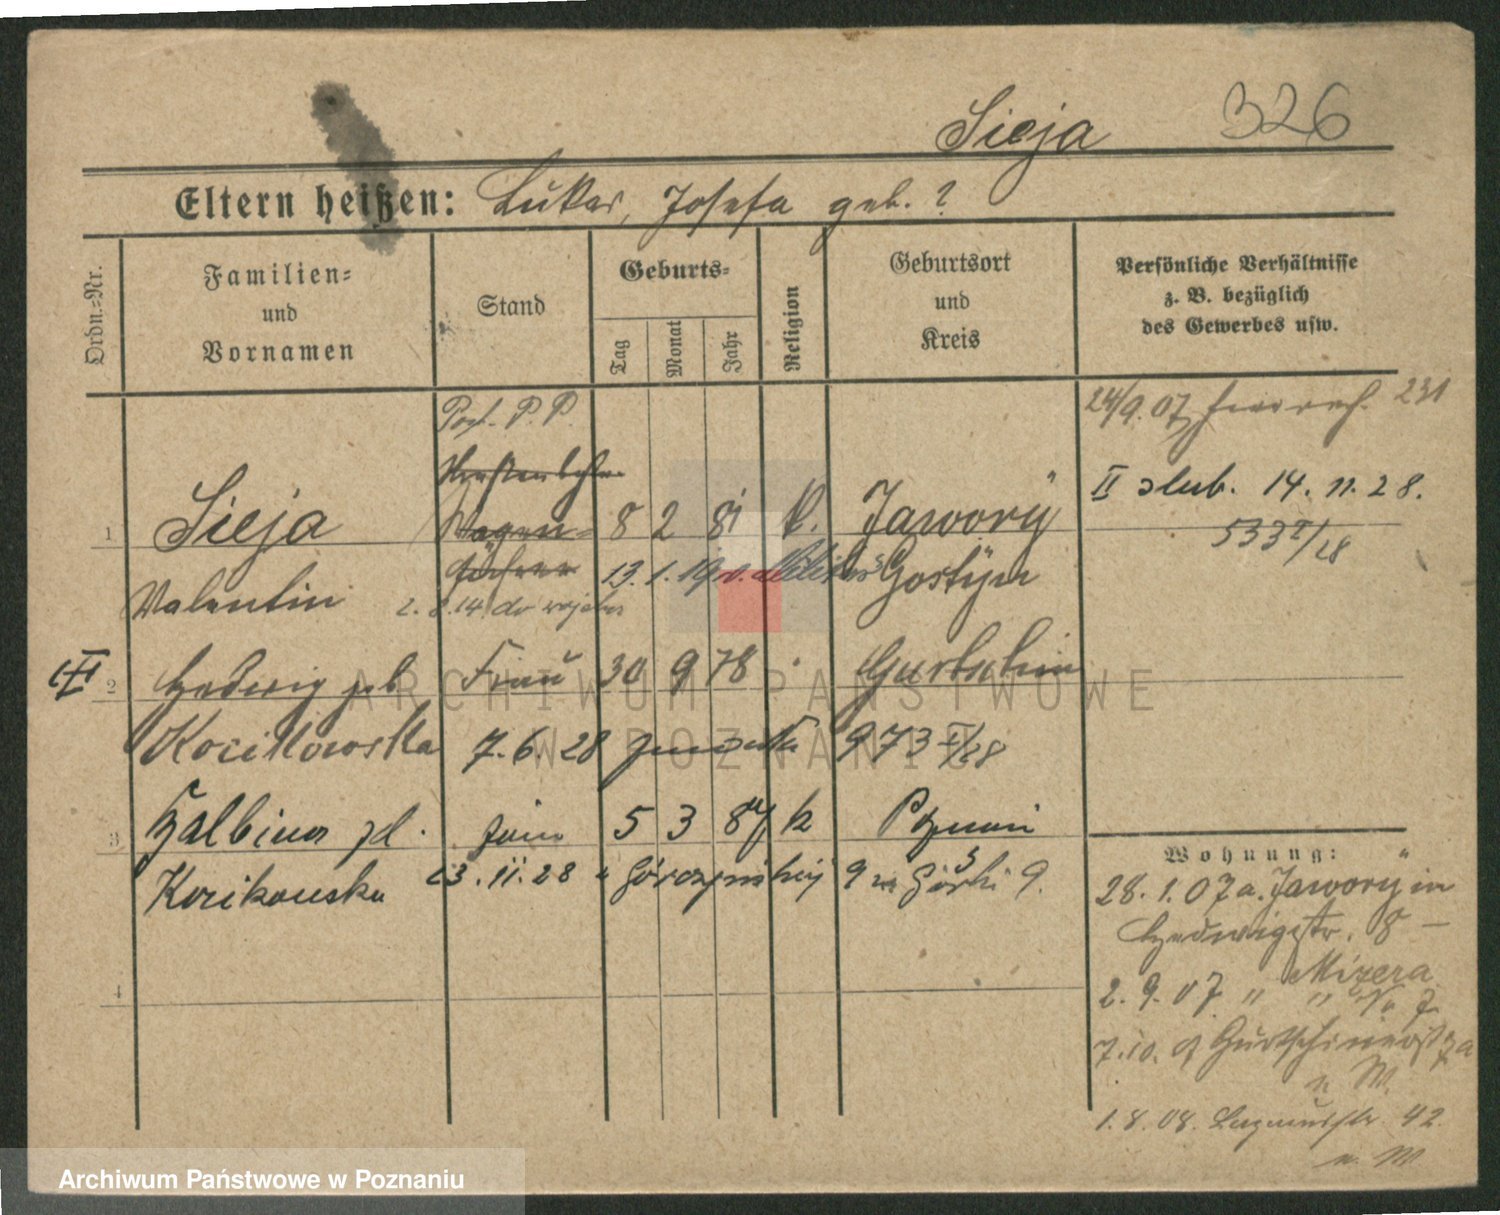 Sieja 326
Eltern heißen: Lukas, Josefa geb. ?
Ordn.-Nr.
Familien-
und
Vornamen
Stand
Geburts-
Tag
Monat
Jahr
Religion
Geburtsort
und
Kreis
Persönliche Verhältnisse
z. B. bezüglich
des Gewerbes usw.
Post. P. P.
24/9.07 231
II slub. 14. 11. 28.
533 I/28
1 Sieja Wagen- 8 2 81 k. Jawory
Valentin 13. 1. Gostyn
2. 8. 14. do wojska
2 Hedwig geb Frau 30 9 78 Gurtschin
Kocikowska 7. 6. 28 zmarła 973 I/28
3 Balbina zd. żona 5 3 84 k Poznań
Kocikowska 23. 11. 28 Górczyńskiej 9 Górki 9.
4
Wohnung:
28. 1. 07 a. Jawory in
Hedwigstr. 8 –
2. 9. 07 " " Mizera
7. 10. 07 Gurtschinerstr
n W.
1. 8. 08. 42.
n. W
ARCHIWUM PAŃSTWOWE
W POZNANIU
Archiwum Państwowe w Poznaniu